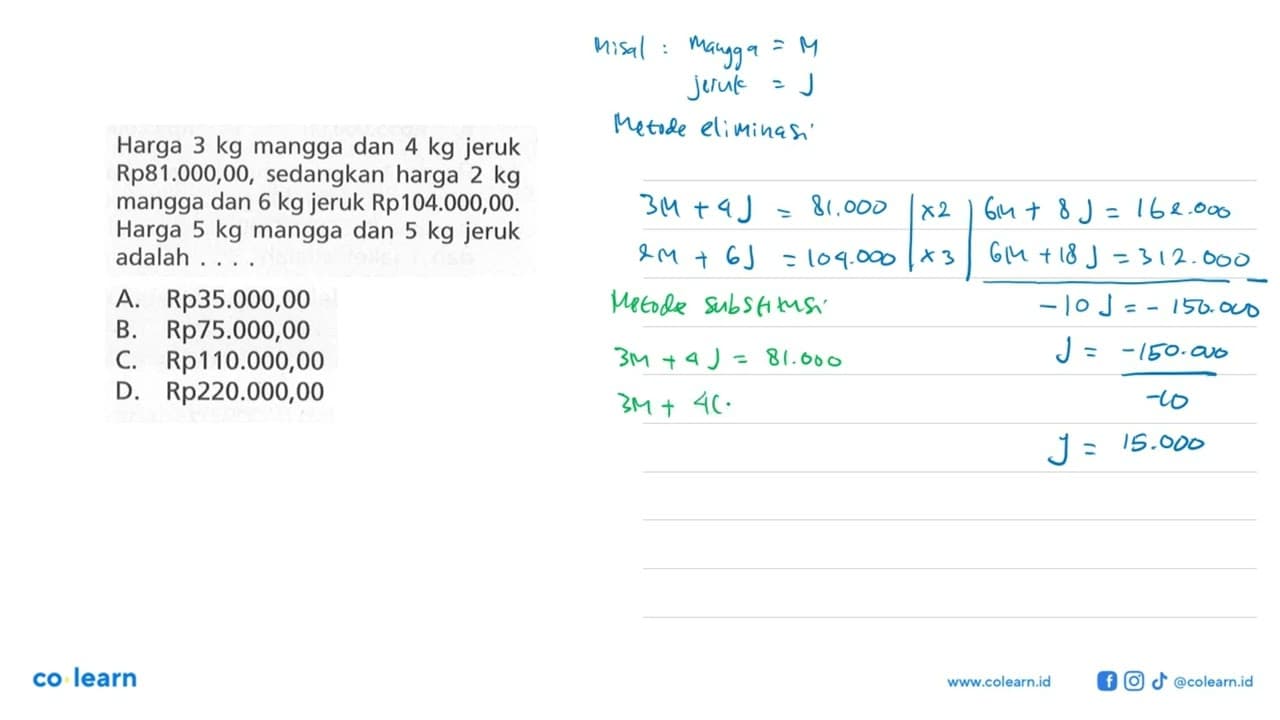 Harga 3 kg mangga dan 4 kg jeruk
Rp81.000,00, sedangkan harga 2 kg
mangga dan 6 kg jeruk Rp104.000,00.
Harga 5 kg mangga dan 5 kg jeruk
adalah . . . .
A. Rp35.000,00
B. Rp75.000,00
C. Rp110.000,00
D. Rp220.000,00
Misal : Mangga = M
jeruk = J
Metode eliminasi
3M + 4J = 81.000 | x2 | 6M + 8J = 162.000
2M + 6J = 104.000 | x3 | 6M + 18J = 312.000 -
-10J = -150.000
J = -150.000
-10
J = 15.000
Metode substitusi
3M + 4J = 81.000
3M + 4(.
co learn
www.colearn.id
@colearn.id